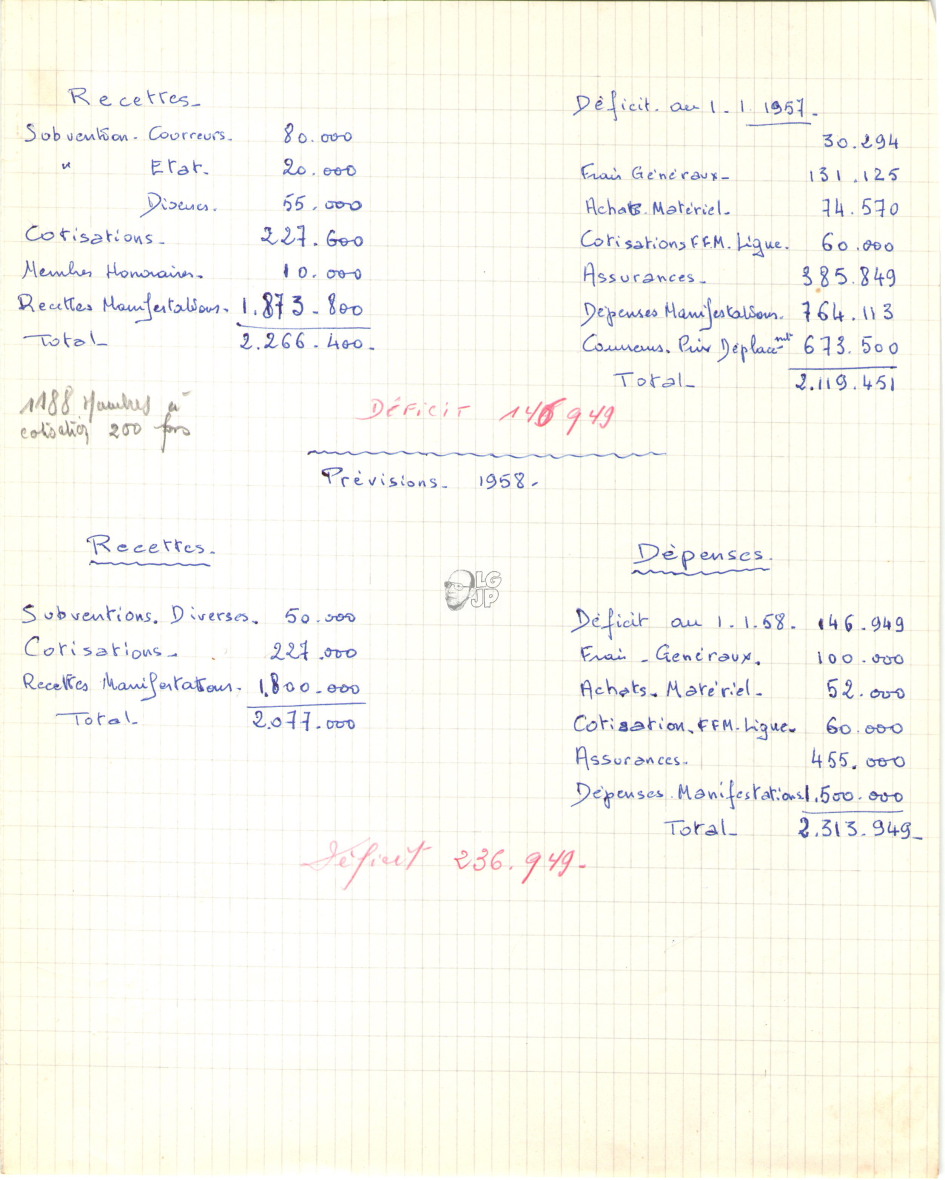 Recettes_
Subvention. Courreurs. 80.000
" Etat. 20.000
Divers. 55.000
Cotisations_ 227.600
Membres Honoraires. 10.000
Recettes Manifestations. 1.873.800
Total_ 2.266.400.
1188 Membres à
cotisation 200 frs
Déficit. au 1.1.1957.
30.294
Frais Généraux_ 131.125
Achats. Matériel. 74.570
Cotisations F.F.M. Ligue. 60.000
Assurances_ 385.849
Dépenses Manifestations. 764.113
Coureurs. Prix Déplacemnt 673.500
Total_ 2.119.451
DÉFICIT 146949
Prévisions. 1958.
Recettes.
Subventions. Diverses. 50.000
Cotisations_ 227.000
Recettes Manifestations. 1.800.000
Total_ 2.077.000
LG
JP
Dépenses.
Déficit au 1.1.58. 146.949
Frais_Generaux. 100.000
Achats. Matériel_ 52.000
Cotisation. FFM. Ligue. 60.000
Assurances. 455.000
Dépenses Manifestations 1.500.000
Total_ 2.313.949_
Déficit 236.949.